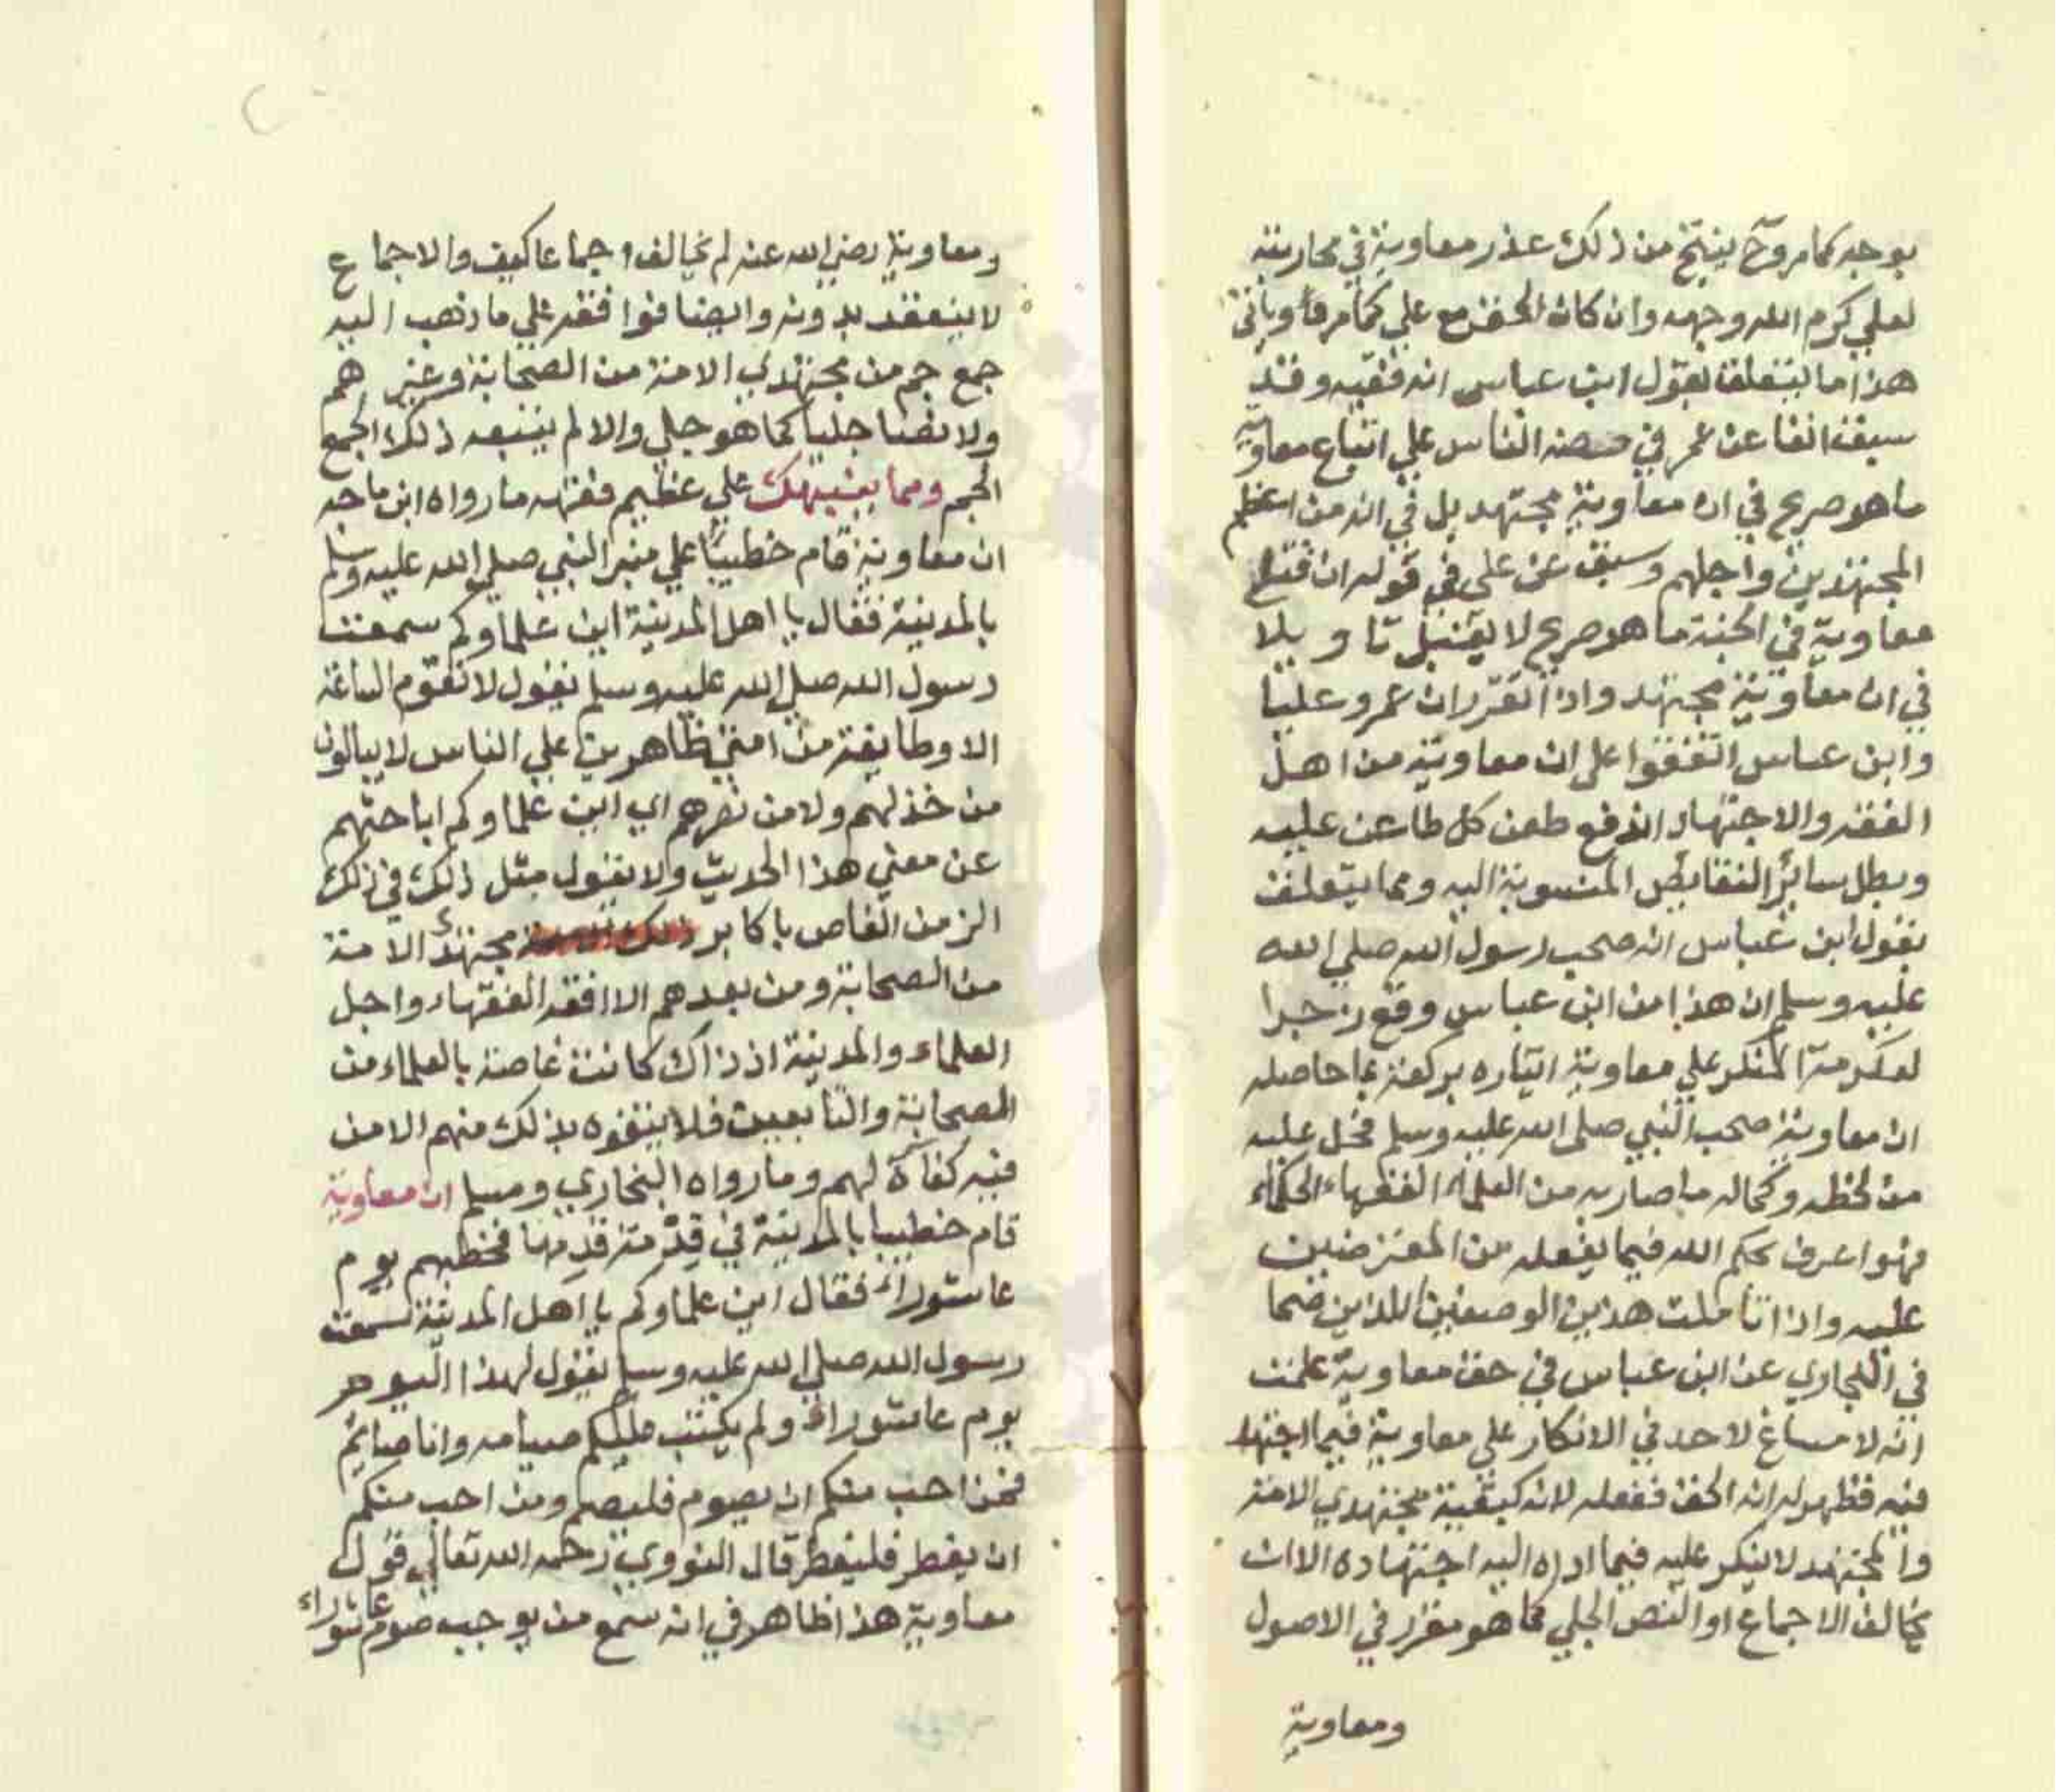 بوجه كما مر وح ينتج من ذلك عذر معاوية في محاربته
لعلي كرم الله وجهه وان كان الحق مع علي كما مر وياتي
هذا ما يتعلق بقول ابن عباس انه فقيه وقد
سبق انفا عن عمر في حضه الناس علي اتباع معاوية
ما هو صريح في ان معاوية مجتهد بل في انه من اعظم
المجتهدين واجلهم وسبق عن علي في قوله ان قتلي
معاوية في الجنة ما هو صريح لا يقبل تاويلا
في ان معاوية مجتهد واذا تقرر ان عمر وعليا
وابن عباس اتفقوا علي ان معاوية من اهل
الفقه والاجتهاد اندفع طعن كل طاعن عليه
وبطل سائر النقايص المنسوبة اليه ومما يتعلق
بقول ابن عباس انه صحب رسول الله صلي الله
عليه وسلم ان هذا من ابن عباس وقع زجرا
لعكرمة المنكر علي معاوية ايتاره بركعة بما حاصله
ان معاوية صحب النبي صلى الله عليه وسلم فحل عليه
من لحظه وكماله ما صار به من العلماء الفقهاء الحكماء
فهو اعرف بحكم الله فيما يفعله من المعترضين
عليه واذا تاملت هذين الوصفين اللذين صحا
في البخاري عن ابن عباس في حق معاوية علمت
انه لا مساغ لاحد في الانكار علي معاوية فيما اجتهد
فيه فظهر له انه الحق ففعله لانه كبقية مجتهدي الامة
والمجتهد لا ينكر عليه فيما اداه اليه اجتهاده الا ان
يخالف الاجماع او النص الجلي كما هو مقرر في الاصول
ومعاوية
ومعاوية رضي الله عنه لم يخالف اجماعا كيف والاجماع
لا ينعقد بدونه وايضا فوافقه علي ما ذهب اليه
جمع جم من مجتهدي الامة من الصحابة وغيرهم
ولا نصا جليا كما هو جلي والا لم يتبعه ذلك الجمع
الجم ومما ينبيك علي عظيم فقهه ما رواه ابن ماجه
ان معاوية قام خطيبا علي منبر النبي صلي الله عليه وسلم
بالمدينة فقال يا اهل المدينة اين علماوكم سمعت
رسول الله صلي الله عليه وسلم يقول لا تقوم الساعة
الا وطايفة من امتي ظاهرين علي الناس لا يبالون
من خذلهم ولا من نصرهم اي اين علماوكم اباحثهم
عن معني هذا الحديث ولا يقول مثل ذلك في ذلك
الزمن الغاص باكابر مجتهدي الامة
من الصحابة ومن بعدهم الا افقه الفقهاء واجل
العلماء والمدينة اذ ذاك كانت غاصة بالعلماء من
الصحابة والتابعين فلا يتفوه بذلك منهم الا من
فيه كفاة لهم وما رواه البخاري ومسلم ان معاوية
قام خطيبا بالمدينة في قدمة قدمها فخطبهم يوم
عاشوراء فقال اين علماوكم يا اهل المدينة سمعت
رسول الله صلي الله عليه وسلم يقول لهذا اليوم
يوم عاشوراء ولم يكتب عليكم صيامه وانا صايم
فمن احب منكم ان يصوم فليصم ومن احب منكم
ان يفطر فليفطر قال النووي رحمه الله تعالي قول
معاوية هذا ظاهر في انه سمع من يوجب صوم عاشوراء